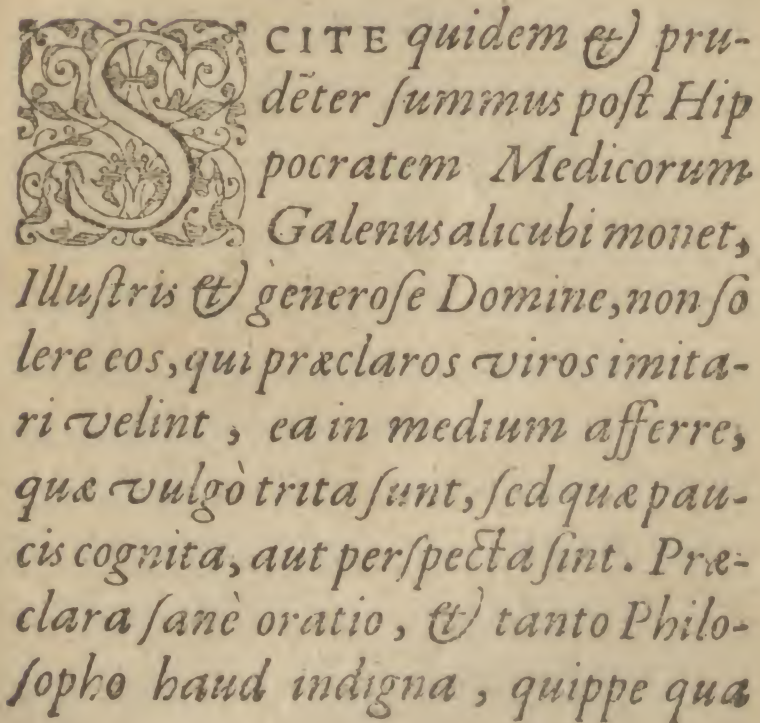 SCITE quidem & pru-
dẽter ſummus poſt Hip
pocratem Medicorum
Galenus alicubi monet,
Illuſtris & generoſe Domine, non ſo
lere eos, qui præclaros viros imita-
ri velint, ea in medium afferre,
quæ vulgò trita ſunt, ſed quæ pau-
cis cognita, aut perſpecta ſint. Præ-
clara ſanè oratio, & tanto Philo-
ſopho haud indigna, quippe qua